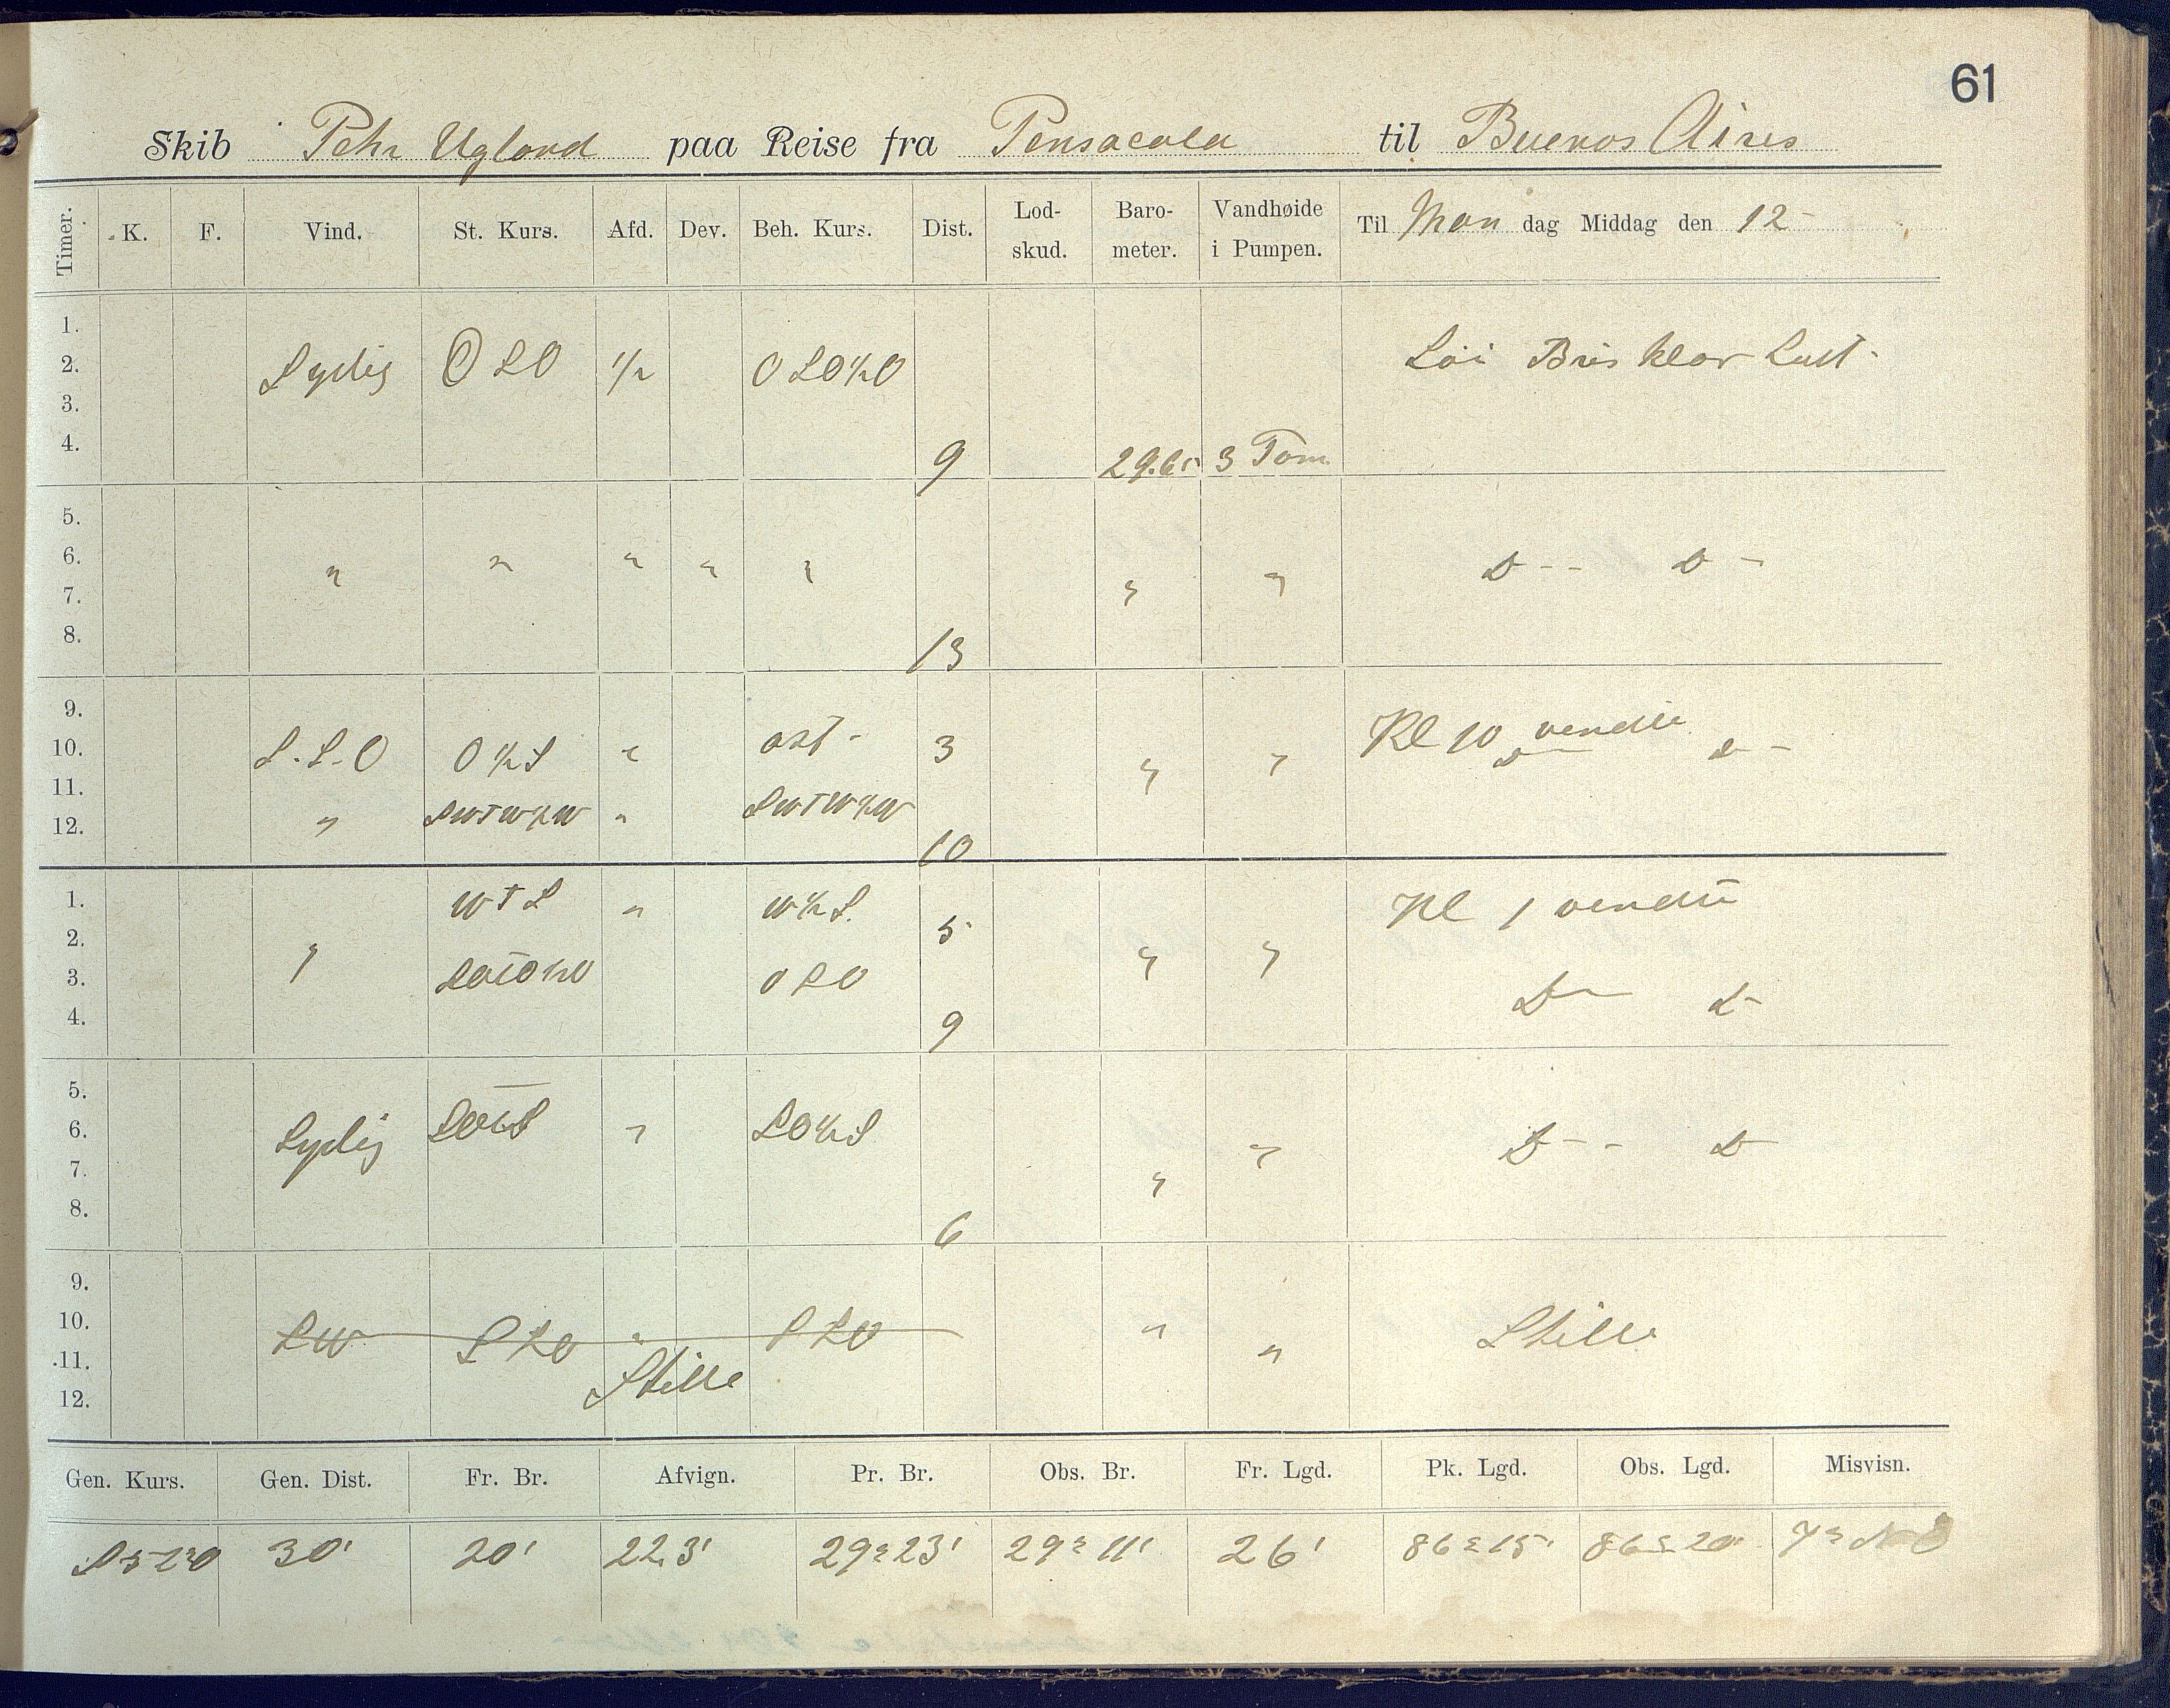 61
Skib Pehr Ugland paa Reise fra Pensacola til Buenos Aires
Timer. K. F. Vind. St. Kurs. Afd. Dev. Beh. Kurs. Dist. Lod-skud. Baro-meter. Vandhøide i Pumpen. Til Man dag Middag den 12
1.
2. Sydlig OSO 1/2 OSO½O Löi Bris klar Luft
3.
4. 9 29.65 3 Tom
5.
6. " " " " " " " D-- D-
7.
8. 13
9.
10. S.S.O O½S " ost 3 " " Kl 10 vendte D- D-
11.
12. " SWTW½W " SWTW½W 10
1. WTS " W½S. Kl 1 vendte
2. " 5 " "
3. SOTO½O OSO D- D-
4. 9
5.
6. Sydlig " SO½S D-- D
7. " "
8. 6
9.
10. SW SSO " SSO " Stille
11. Stille "
12.
Gen. Kurs. Gen. Dist. Fr. Br. Afvign. Pr. Br. Obs. Br. Fr. Lgd. Pk. Lgd. Obs. Lgd. Misvisn.
30' 20' 22,3' 29° 23' 29° 11' 26' 86° 15' 86° 20' 7° NO